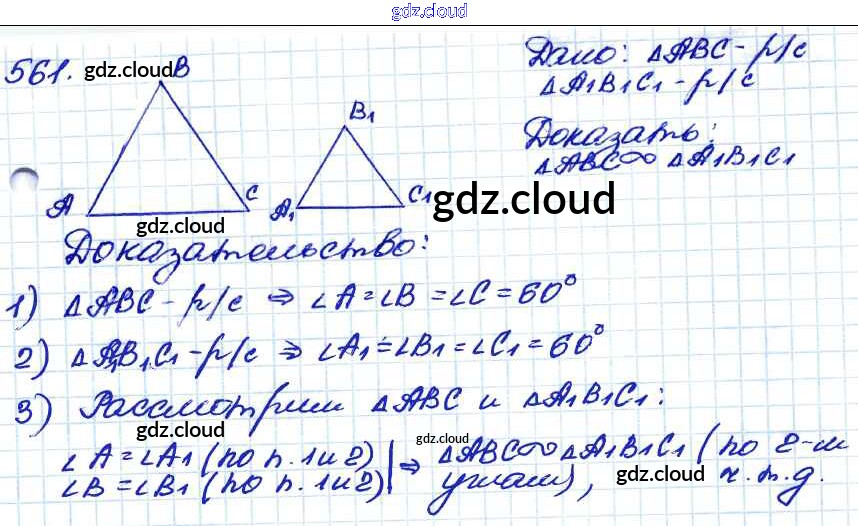 gdz.cloud
561.
gdz.cloud
B
Дано: △ABC - р/с
△A1B1C1 - р/с
B1
Доказать:
△ABC∾ △A1B1C1
A
C
A1
C1
gdz.cloud
gdz.cloud
Доказательство:
1) △ABC - р/с ⇒ ∠A = ∠B = ∠C = 60°
2) △A1B1C1 - р/с ⇒ ∠A1 = ∠B1 = ∠C1 = 60°
3) Рассмотрим △ABC и △A1B1C1:
gdz.cloud
gdz.cloud
∠A = ∠A1 (по п. 1 и 2) | ⇒ △ABC∾△A1B1C1 (по 2-м
∠B = ∠B1 (по п. 1 и 2) | углам), ч.т.д.
gdz.cloud
gdz.cloud